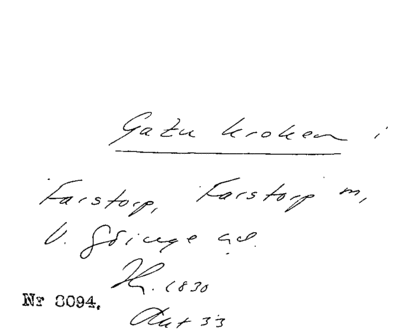 Gatu kroken i
Farstorp, Farstorp m,
V. Göinge hd.
1830
Nr 3094.
33